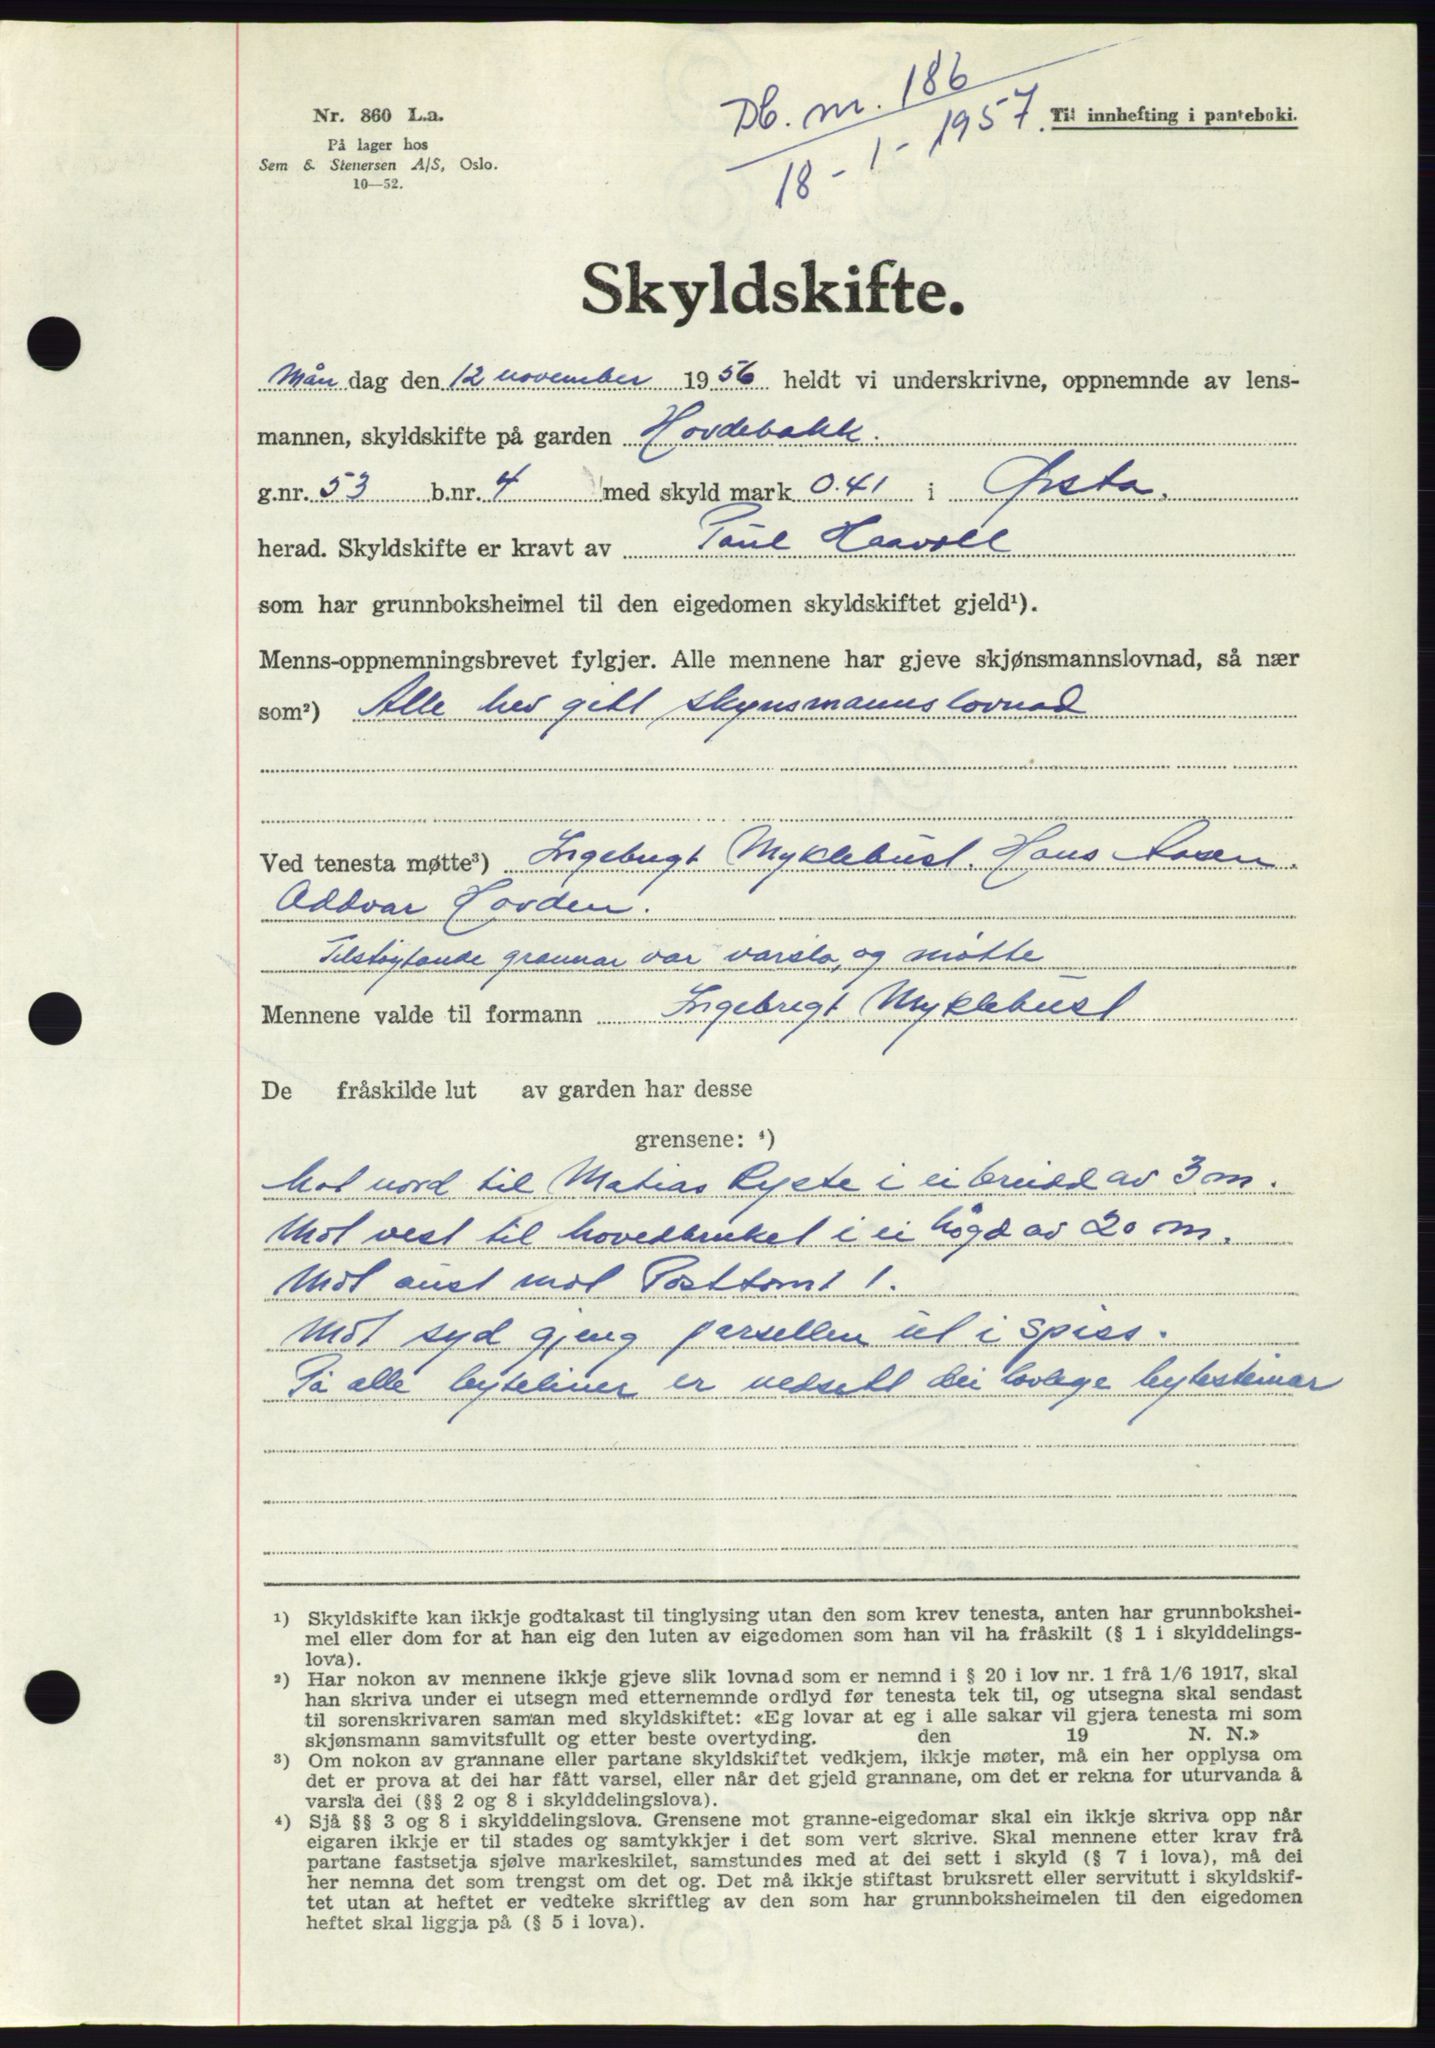 Db. nr. 186
18-1-1957.
Til innhefting i panteboki.
Nr. 860 L.a.
På lager hos
Sem & Stenersen A/S, Oslo.
10—52.
Skyldskifte.
Mån dag den 12 november 1956 heldt vi underskrivne, oppnemnde av lens-
mannen, skyldskifte på garden Hovdebakk.
g.nr. 53 b.nr. 4 med skyld mark 0.41 i Ørsta.
herad. Skyldskifte er kravt av Paul Haavoll
som har grunnboksheimel til den eigedomen skyldskiftet gjeld¹).
Menns-oppnemningsbrevet fylgjer. Alle mennene har gjeve skjønsmannslovnad, så nær
som²) Alle hev gitt skynsmannslovnad
Ved tenesta møtte³) Ingebrigt Myklebust. Hans Aasen.
Oddvar Hovden.
Tilstøytande grannar var varsla, og møtte
Mennene valde til formann Ingebrigt Myklebust
De fråskilde lut av garden har desse
grensene: ⁴)
Mot nord til Matias Ryste i ei breidd av 3 m.
Mot vest til hovedbruket i ei høgd av 20 m.
Mot aust mot Posttomt 1.
Mot syd gjeng parsellen ut i spiss.
På alle byteliner er nedsett dei lovlege bytesteinar
¹) Skyldskifte kan ikkje godtakast til tinglysing utan den som krev tenesta, anten har grunnbokshei-
mel eller dom for at han eig den luten av eigedomen som han vil ha fråskilt (§ 1 i skylddelings-
lova).
²) Har nokon av mennene ikkje gjeve slik lovnad som er nemnd i § 20 i lov nr. 1 frå 1/6 1917, skal
han skriva under ei utsegn med etternemnde ordlyd før tenesta tek til, og utsegna skal sendast
til sorenskrivaren saman med skyldskiftet: «Eg lovar at eg i alle sakar vil gjera tenesta mi som
skjønsmann samvitsfullt og etter beste overtyding. den 19 N. N.»
³) Om nokon av grannane eller partane skyldskiftet vedkjem, ikkje møter, må ein her opplysa om
det er prova at dei har fått varsel, eller når det gjeld grannane, om det er rekna for uturvanda å
varsla dei (§§ 2 og 8 i skylddelingslova).
⁴) Sjå §§ 3 og 8 i skylddelingslova. Grensene mot granne-eigedomar skal ein ikkje skriva opp når
eigaren ikkje er til stades og samtykkjer i det som vert skrive. Skal mennene etter krav frå
partane fastsetja sjølve markeskilet, samstundes med at dei sett i skyld (§ 7 i lova), må dei
her nemna det som trengst om det og. Det må ikkje stiftast bruksrett eller servitutt i skyldskif-
tet utan at heftet er vedteke skriftleg av den som har grunnboksheimelen til den eigedomen
heftet skal liggja på (§ 5 i lova).